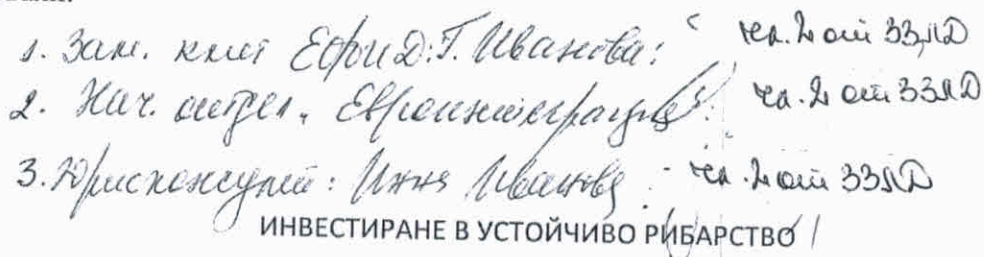 1. Зам. кмет ЕФи Д: Г. Иванова: чл. 2 от ЗЗЛД
2. Нач. отдел „Евроинтеграция": чл. 2 от ЗЗЛД
3. Юрисконсулт: Инна Иванова: чл. 2 от ЗЗЛД
ИНВЕСТИРАНЕ В УСТОЙЧИВО РИБАРСТВО